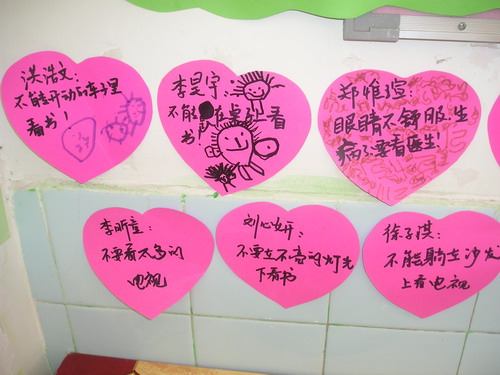 洪浩文:
不能开动的车子里
看书!
李昊宇:
不能在桌上看
书!
郑惟瑄:
眼睛不舒服.生
病了要看医生!
李昕童:
不要看太多的
电视
刘心妍:
不要在不亮的灯光
下看书
徐子淇:
不能躺在沙发
上看电视